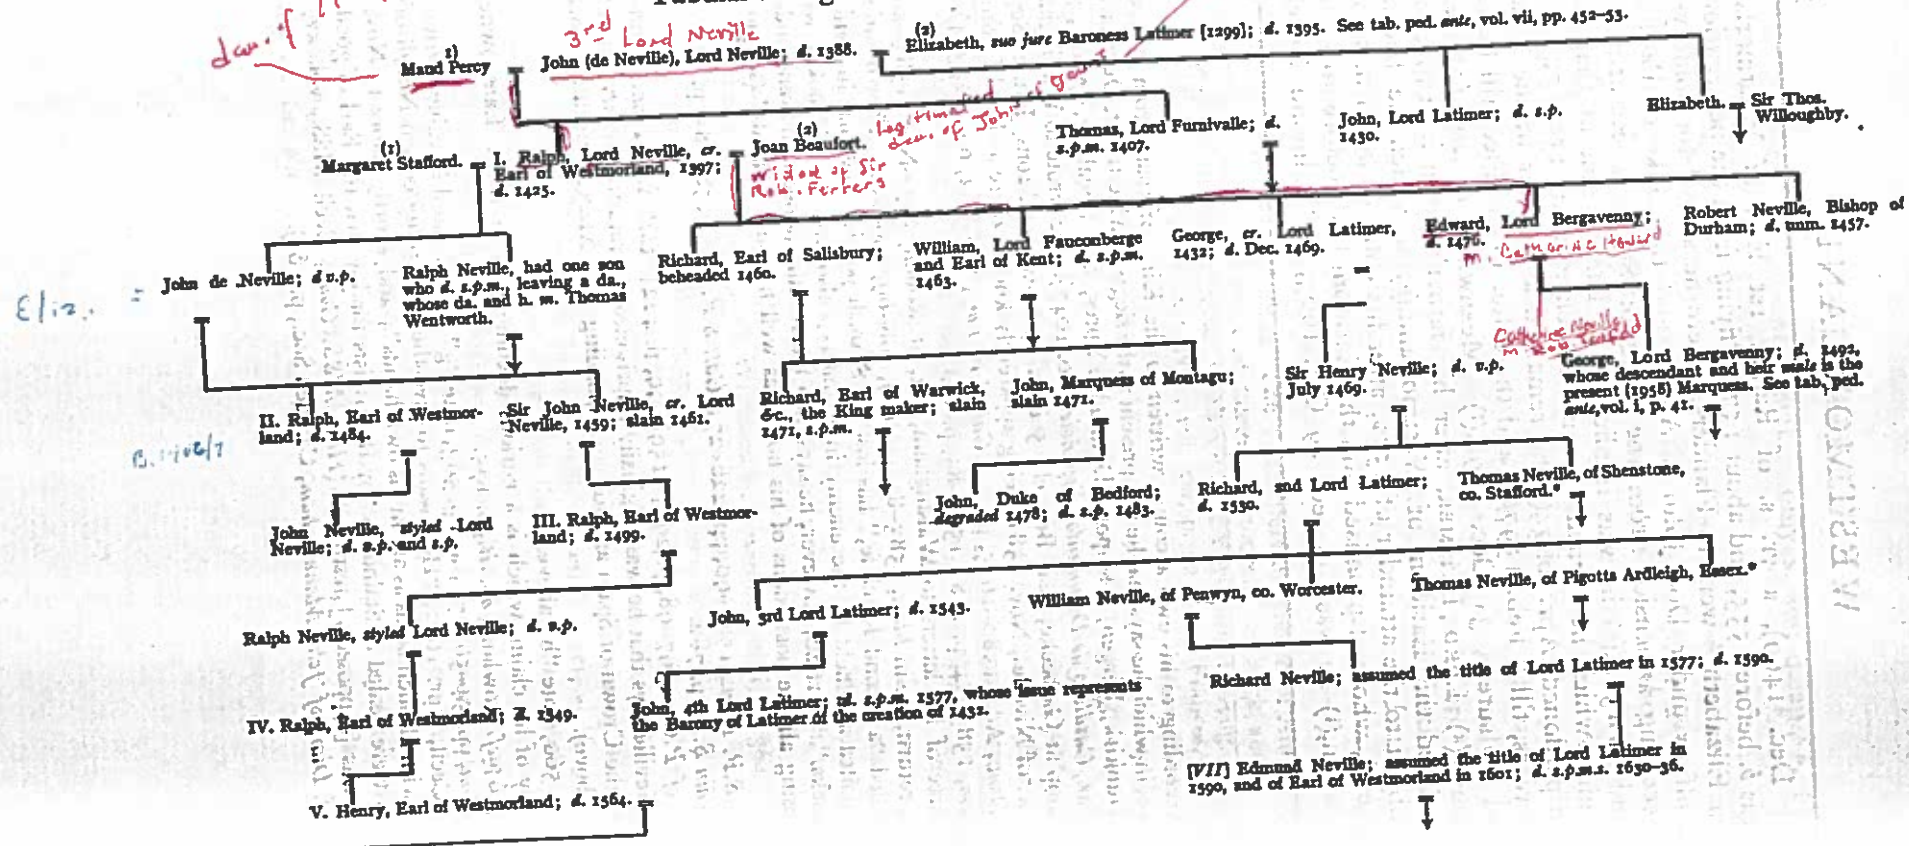 dau. of
3rd Lord Neville
1)
Maud Percy
John (de Neville), Lord Neville; d. 1388.
(2)
Elizabeth, suo jure Baroness Latimer [1299]; d. 1395. See tab. ped. ante, vol. vii, pp. 452-53.
(1)
Margaret Stafford.
I. Ralph, Lord Neville, cr.
Earl of Westmorland, 1397;
d. 1425.
(2)
Joan Beaufort.
Legitimated
dau. of John of Gaunt
widow of Sir
Rob. Ferrers
Thomas, Lord Furnivalle; d.
s.p.m. 1407.
John, Lord Latimer; d. s.p.
1430.
Elizabeth.
Sir Thos.
Willoughby.
Eliz. =
John de Neville; d v.p.
Ralph Neville, had one son
who d. s.p.m., leaving a da.,
whose da. and h. m. Thomas
Wentworth.
Richard, Earl of Salisbury;
beheaded 1460.
William, Lord Fauconberge
and Earl of Kent; d. s.p.m.
1463.
George, cr. Lord Latimer,
1432; d. Dec. 1469.
Edward, Lord Bergavenny;
d. 1476.
m. Catharine Howard
Robert Neville, Bishop of
Durham; d. unm. 1457.
II. Ralph, Earl of Westmor-
land; d. 1484.
Sir John Neville, cr. Lord
Neville, 1459; slain 1461.
Richard, Earl of Warwick,
&c., the King maker; slain
1471, s.p.m.
John, Marquess of Montagu;
slain 1471.
Sir Henry Neville; d. v.p.
July 1469.
Catherine Neville
m Rob
George, Lord Bergavenny; d. 1492,
whose descendant and heir male is the
present (1958) Marquess. See tab. ped.
ante, vol. i, p. 41.
John Neville, styled Lord
Neville; d. v.p. and s.p.
III. Ralph, Earl of Westmor-
land; d. 1499.
John, Duke of Bedford;
degraded 1478; d. s.p. 1483.
Richard, 2nd Lord Latimer;
d. 1530.
Thomas Neville, of Shenstone,
co. Stafford.*
Ralph Neville, styled Lord Neville; d. v.p.
John, 3rd Lord Latimer; d. 1543.
William Neville, of Penwyn, co. Worcester.
Thomas Neville, of Pigotts Ardleigh, Essex.*
IV. Ralph, Earl of Westmorland; d. 1549.
John, 4th Lord Latimer; d. s.p.m. 1577, whose issue represents
the Barony of Latimer of the creation of 1432.
Richard Neville; assumed the title of Lord Latimer in 1577; d. 1590.
V. Henry, Earl of Westmorland; d. 1564.
[VII] Edmund Neville; assumed the title of Lord Latimer in
1590, and of Earl of Westmorland in 1601; d. s.p.m.s. 1630-36.